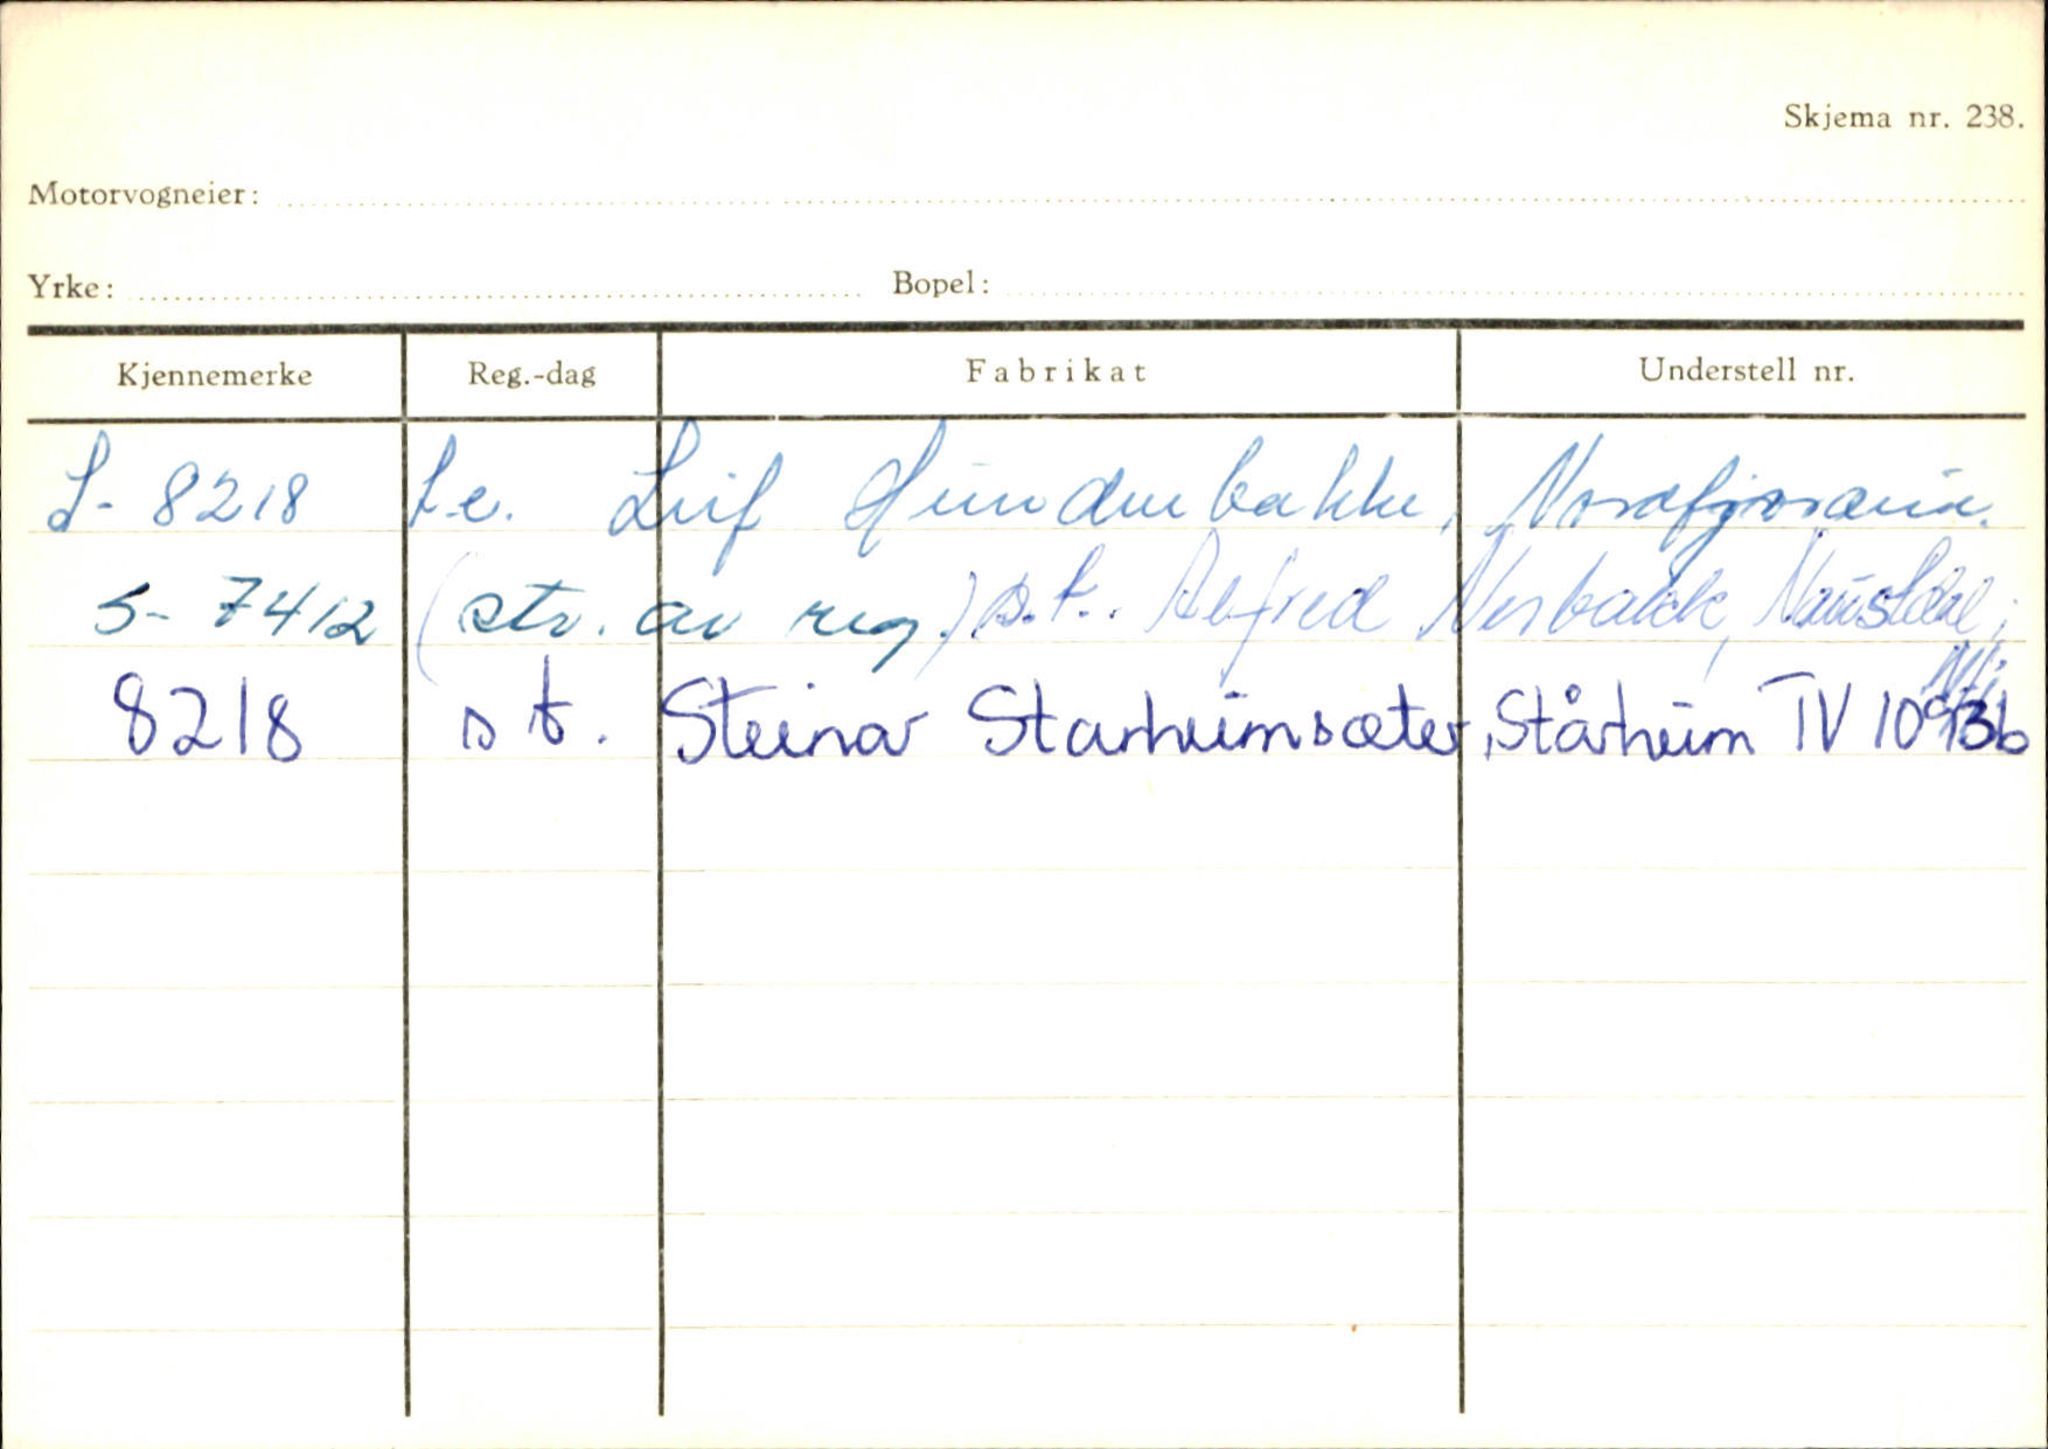 Skjema nr. 238.
Motorvogneier:
Yrke: Bopel:
Kjennemerke Reg.-dag Fabrikat Understell nr.
S- 8218 t.e. Leif Hundebakke, Nordfjordeid.
S- 7412 (str. av reg.) s.t. Alfred Nesbakk, Naustdal,
8218 s t. Steinar Starheimsæter, Stårheim TV 10/9 3b